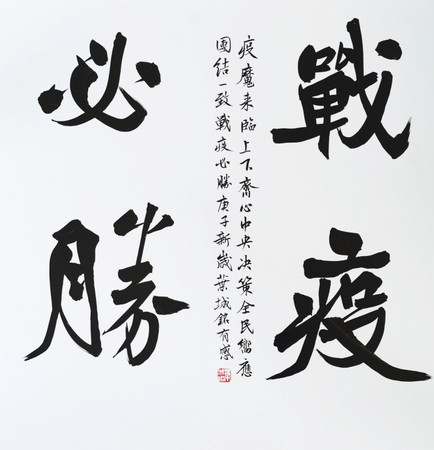 戰疫
必勝
疫魔来臨上下齊心中央决策全民響應
團结一致戰疫必勝庚子新歲葉城銘有感